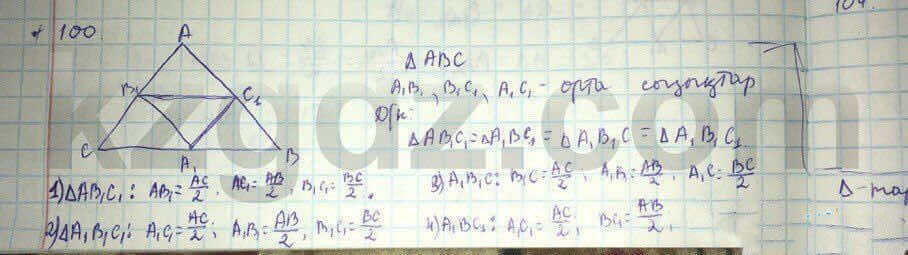 100.
A
B₁ C₁
C A₁ B
Δ ABC
A₁B₁, B₁C₁, A₁C₁ - орта сызықтар
Д/к:
ΔAB₁C₁ = ΔA₁BC₁ = ΔA₁B₁C = ΔA₁B₁C₁
1) ΔAB₁C₁: AB₁ = AC/2, AC₁ = AB/2, B₁C₁ = BC/2.
2) ΔA₁B₁C₁: A₁C₁ = AC/2; A₁B₁ = AB/2, B₁C₁ = BC/2
3) A₁B₁C: B₁C = AC/2; A₁B₁ = AB/2, A₁C = BC/2
4) A₁BC₁: A₁C₁ = AC/2; BC₁ = AB/2,
104.
kzgdz.com